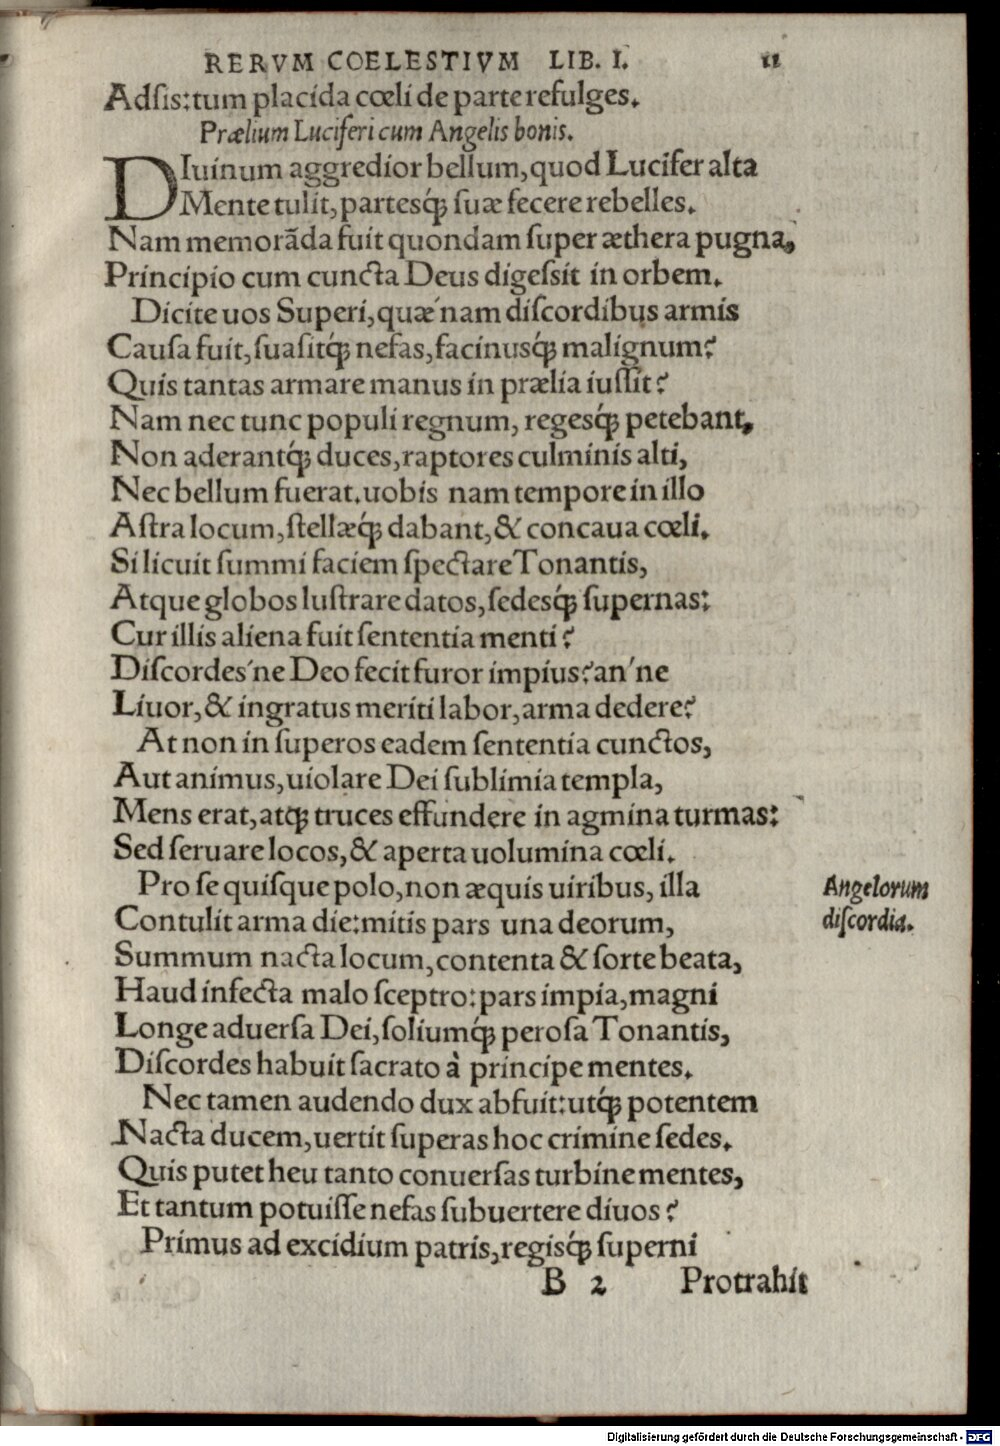 RERVM COELESTIVM LIB. I. 11
Adſis:tum placida cœli de parte refulges.
Prælium Luciferi cum Angelis bonis.
DIuinum aggredior bellum, quod Lucifer alta
Mente tulit, partesq́ꝫ ſuæ fecere rebelles.
Nam memorãda fuit quondam ſuper æthera pugna,
Principio cum cuncta Deus digeſsit in orbem.
Dicite uos Superi, quæ´nam diſcordibus armis
Cauſa fuit, ſuaſitq́ꝫ nefas, facinusq́ꝫ malignum?
Quis tantas armare manus in prælia iuſſit?
Nam nec tunc populi regnum, regesq́ꝫ petebant,
Non aderantq́ꝫ duces, raptores culminis alti,
Nec bellum fuerat. uobis nam tempore in illo
Aſtra locum, ſtellæq́ꝫ dabant, & concaua cœli.
Si licuit ſummi faciem ſpectare Tonantis,
Atque globos luſtrare datos, ſedesq́ꝫ ſupernas:
Cur illis aliena fuit ſententia menti?
Diſcordes´ne Deo fecit furor impius? an´ne
Liuor, & ingratus meriti labor, arma dedere?
At non in ſuperos eadem ſententia cunctos,
Aut animus, uiolare Dei ſublimia templa,
Mens erat, atqꝫ truces effundere in agmina turmas:
Sed ſeruare locos, & aperta uolumina cœli.
Pro ſe quiſque polo, non æquis uiribus, illa
Angelorum
diſcordia.
Contulit arma die: mitis pars una deorum,
Summum nacta locum, contenta & ſorte beata,
Haud infecta malo ſceptro: pars impia, magni
Longe aduerſa Dei, ſoliumq́ꝫ peroſa Tonantis,
Diſcordes habuit ſacrato à principe mentes.
Nec tamen audendo dux abfuit: utq́ꝫ potentem
Nacta ducem, uertit ſuperas hoc crimine ſedes.
Quis putet heu tanto conuerſas turbine mentes,
Et tantum potuiſſe nefas ſubuertere diuos?
Primus ad excidium patris, regisq́ꝫ ſuperni
B 2 Protrahit
Digitalisierung gefördert durch die Deutsche Forschungsgemeinschaft - DFG